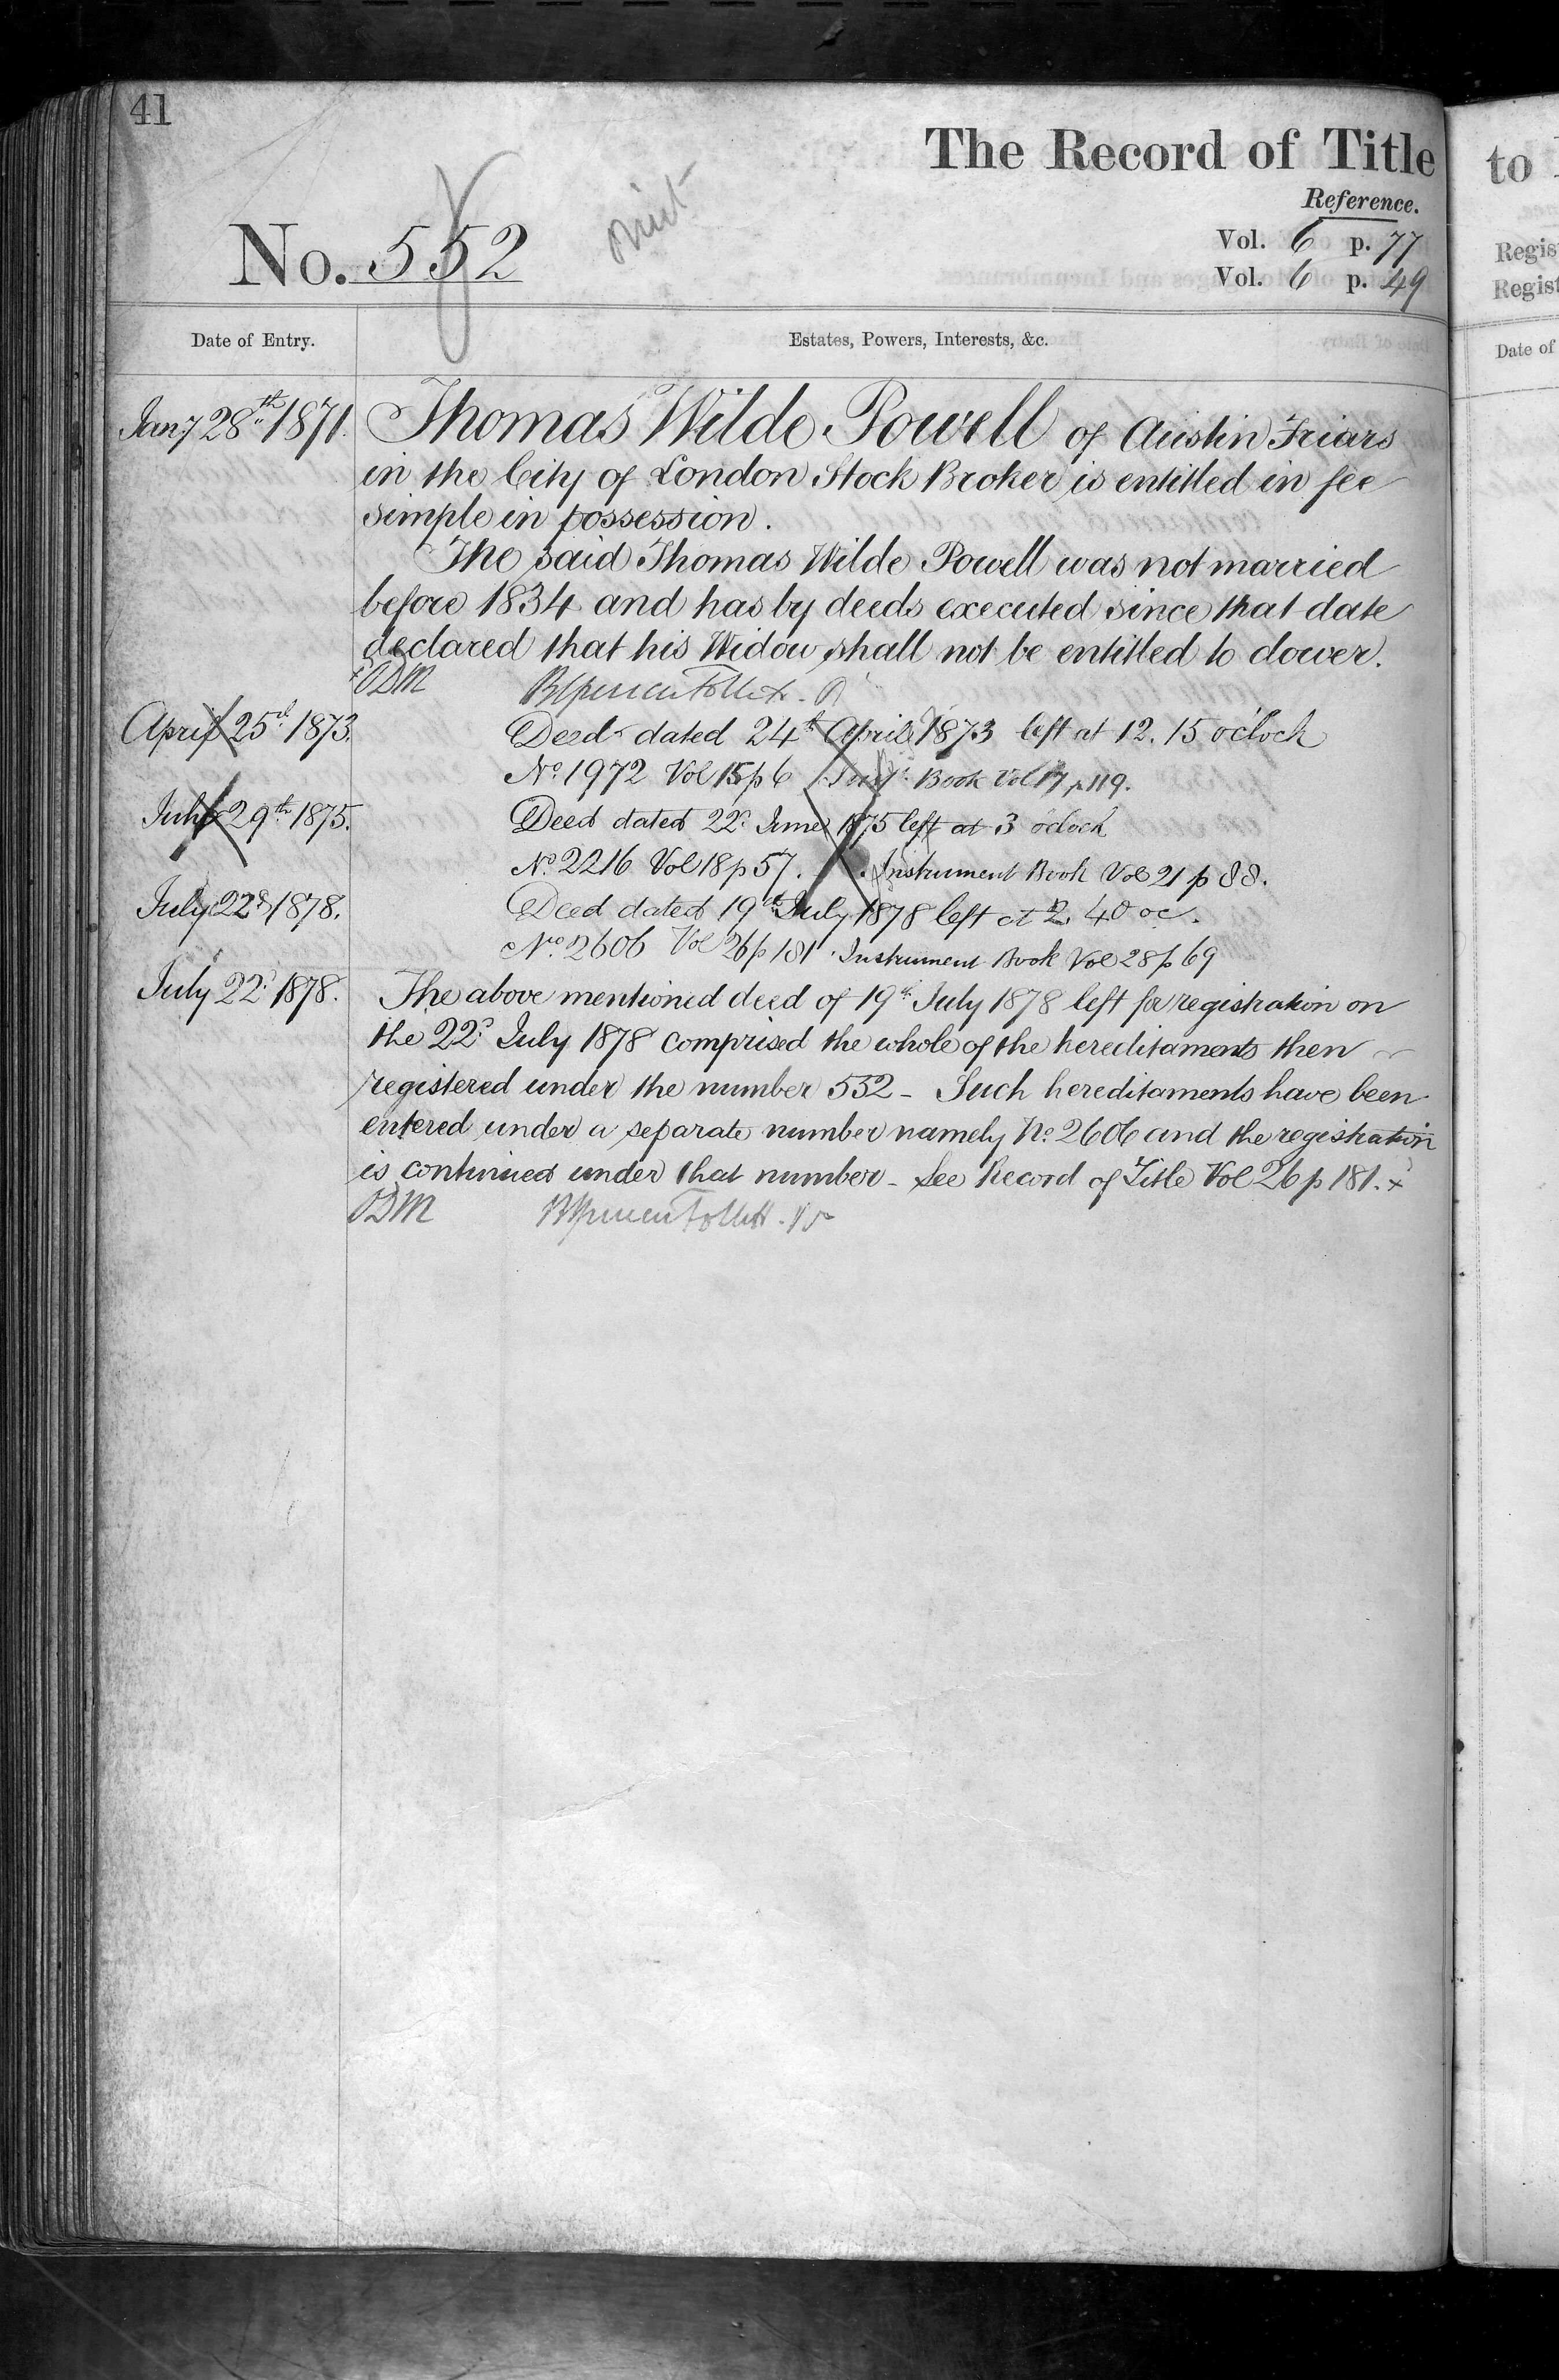 41
The Record of Title
Reference.
No. 552
Vol. 6 p. 77
Vol. 6 p. 49
Date of Entry.
Estates, Powers, Interests, &c.
Jany 28th 1871. Thomas Wilde Powell of Austin Friars
in the City of London Stock Broker is entitled in fee
simple in possession.
The said Thomas Wilde Powell was not married
before 1834 and has by deeds executed since that date
declared that his Widow shall not be entitled to dower.
April 25th 1873. Deed dated 24th April 1873 left at 12.15 o'clock
No. 1972 Vol 15 p 6 Inst. Book Vol 17 p 119.
July 29th 1875. Deed dated 22d June 1875 left at 3 oclock
No. 2216 Vol 18 p 57. Instrument Book Vol 21 p 88.
July 22d 1878. Deed dated 19th July 1878 left at 2. 40 oc.
No. 2606 Vol 26 p 181 Instrument Book Vol 28 p 69
July 22d 1878. The above mentioned deed of 19th July 1878 left for registration on
the 22d July 1878 comprised the whole of the hereditaments then
registered under the number 552 - Such hereditaments have been
entered under a separate number namely No. 2606 and the registration
is continued under that number - See Record of Title Vol 26 p 181. x
to
Regis
Regist
Date of